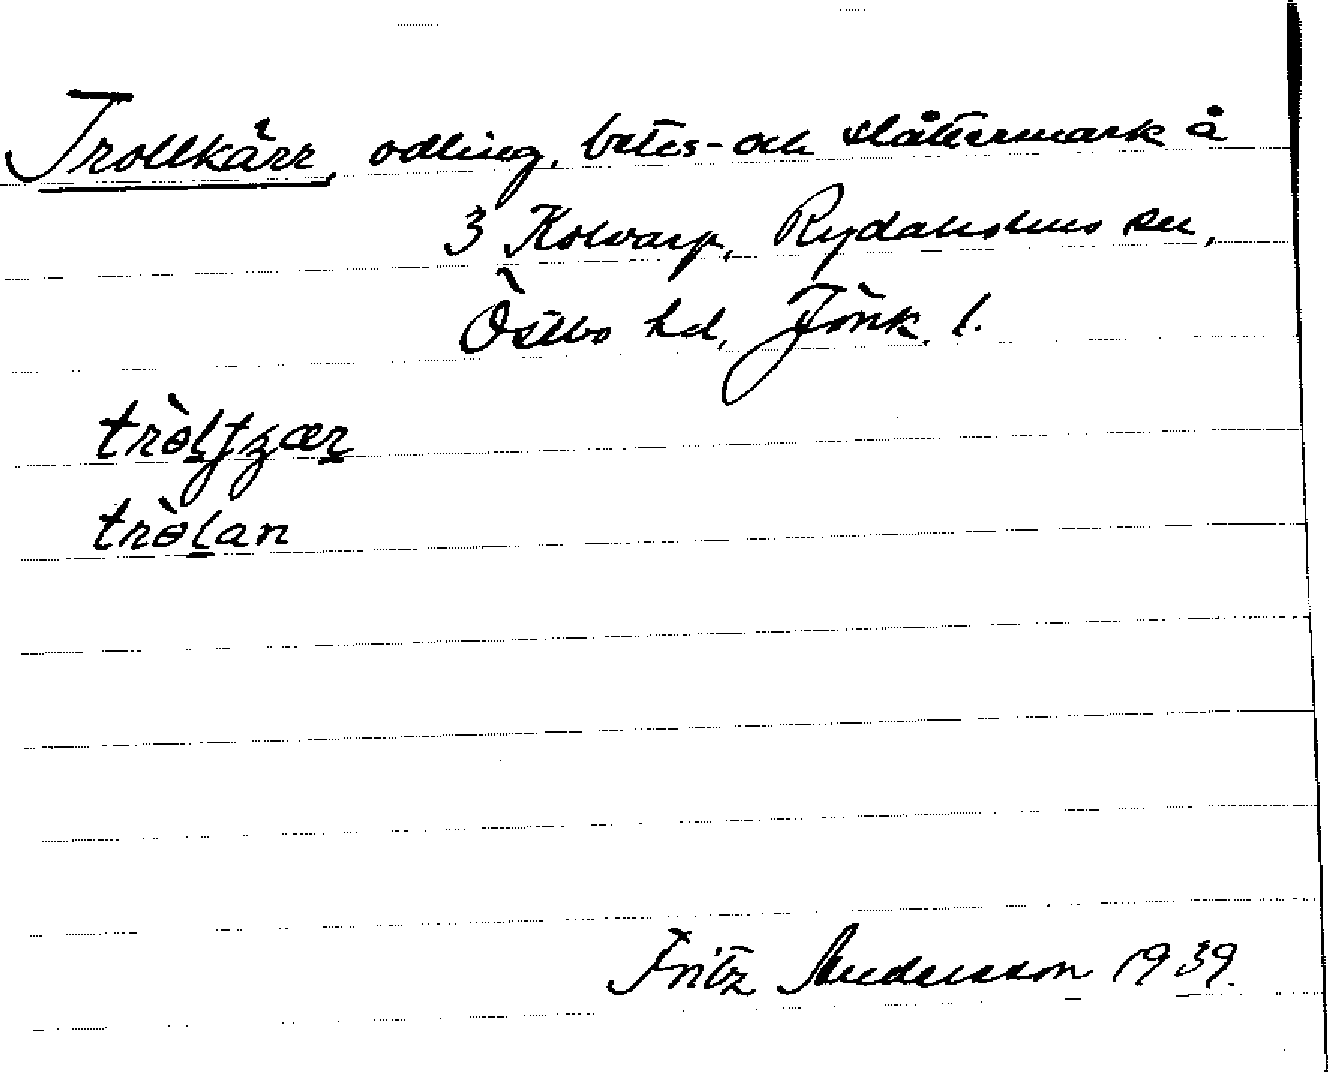 Trollkärr, odling, betes- och slåttermark å
3 Kolvarp, Rydaholms sn,
Östbo hd, Jönk. l.
Fritz Andersson 1939.